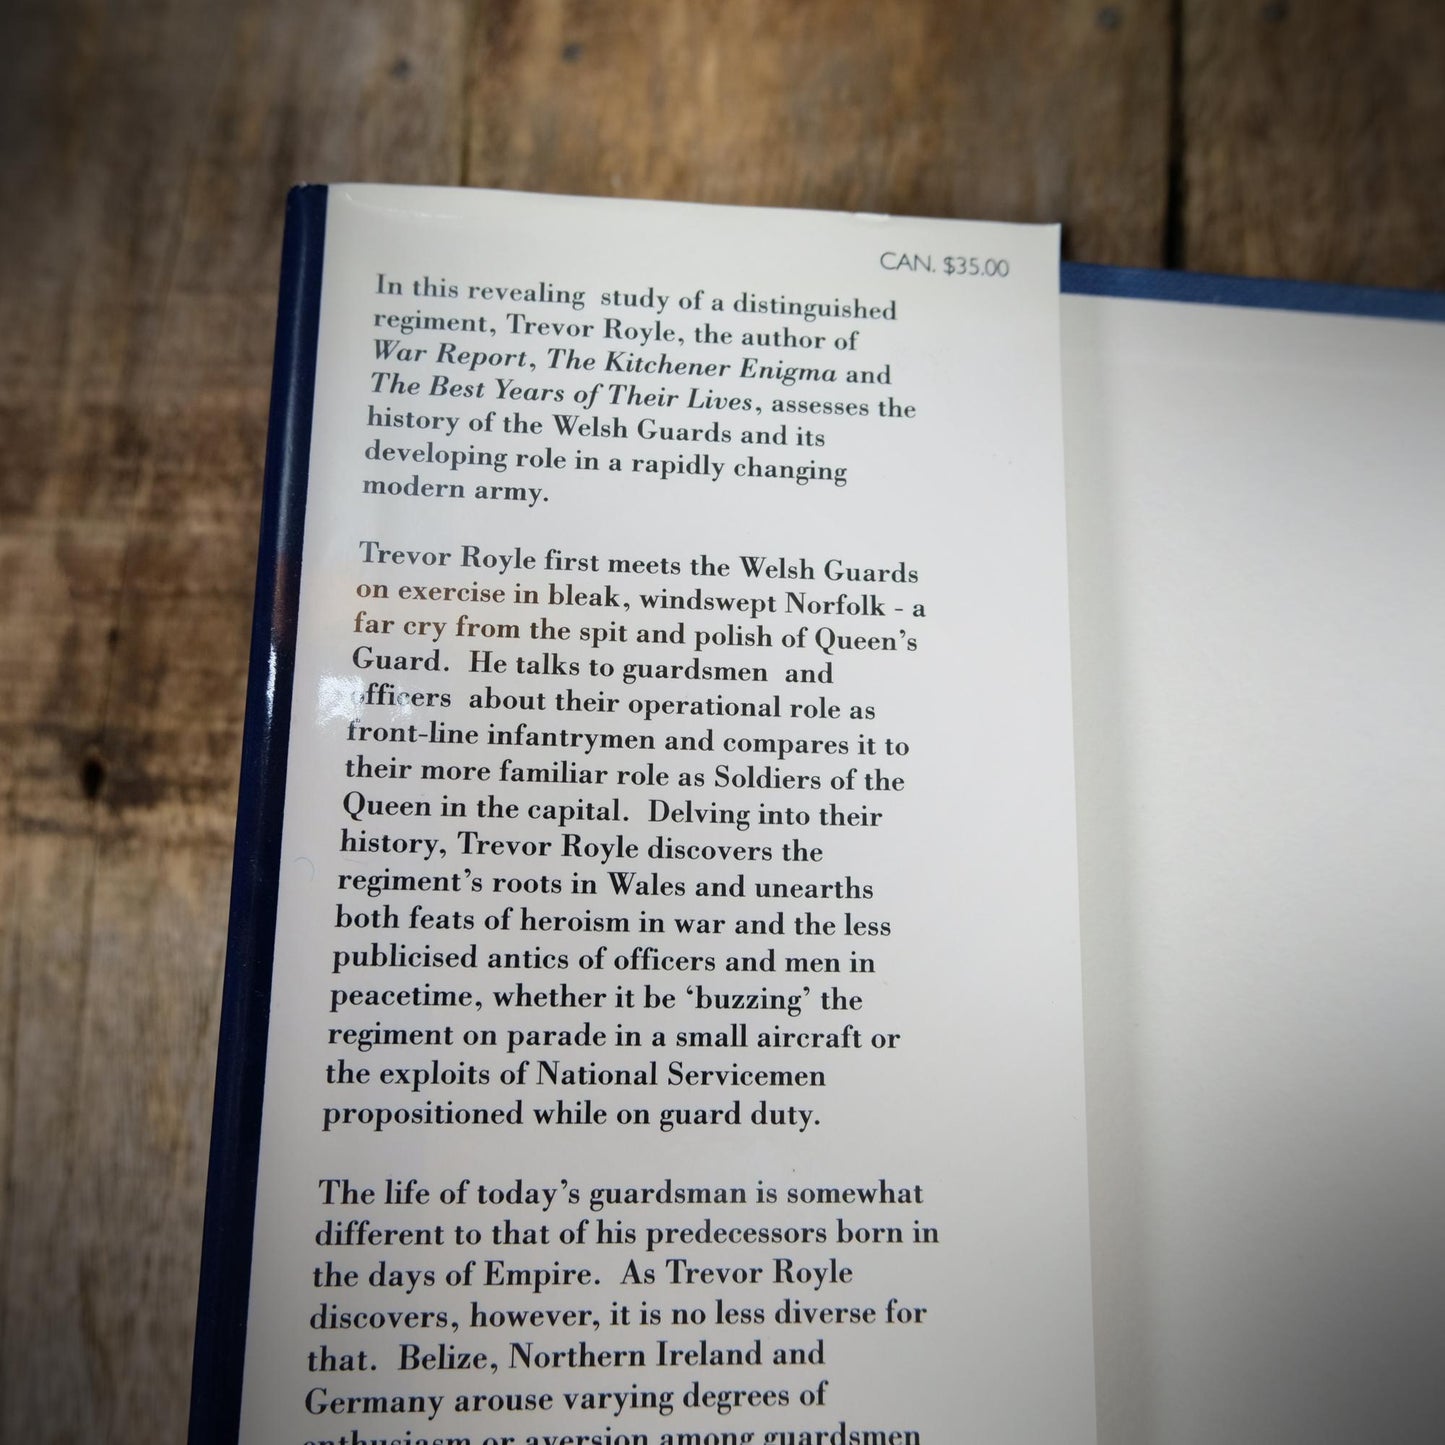 CAN. $35.00
In this revealing study of a distinguished
regiment, Trevor Royle, the author of
War Report, The Kitchener Enigma and
The Best Years of Their Lives, assesses the
history of the Welsh Guards and its
developing role in a rapidly changing
modern army.
Trevor Royle first meets the Welsh Guards
on exercise in bleak, windswept Norfolk - a
far cry from the spit and polish of Queen's
Guard. He talks to guardsmen and
officers about their operational role as
front-line infantrymen and compares it to
their more familiar role as Soldiers of the
Queen in the capital. Delving into their
history, Trevor Royle discovers the
regiment's roots in Wales and unearths
both feats of heroism in war and the less
publicised antics of officers and men in
peacetime, whether it be 'buzzing' the
regiment on parade in a small aircraft or
the exploits of National Servicemen
propositioned while on guard duty.
The life of today's guardsman is somewhat
different to that of his predecessors born in
the days of Empire. As Trevor Royle
discovers, however, it is no less diverse for
that. Belize, Northern Ireland and
Germany arouse varying degrees of
enthusiasm or aversion among guardsmen